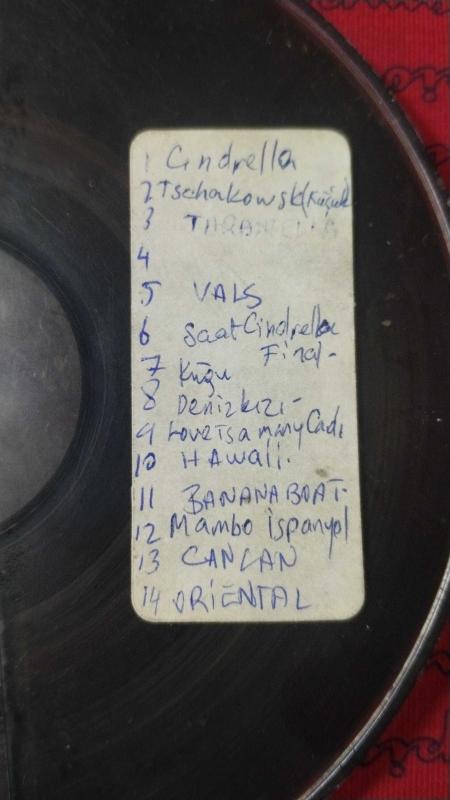 1 Cindrella
2 Tschakowski (Kuğu)
3 TARANTELLA
4
5 VALS
6 Saat Cindrella
Final-
7 Kuğu
8 Denizkızı-
9 Love is a many
10 HAWaii.
11 BANANA BOAT-
12 Mambo ispanyol
13 CANCAN
14 ORİENTAL